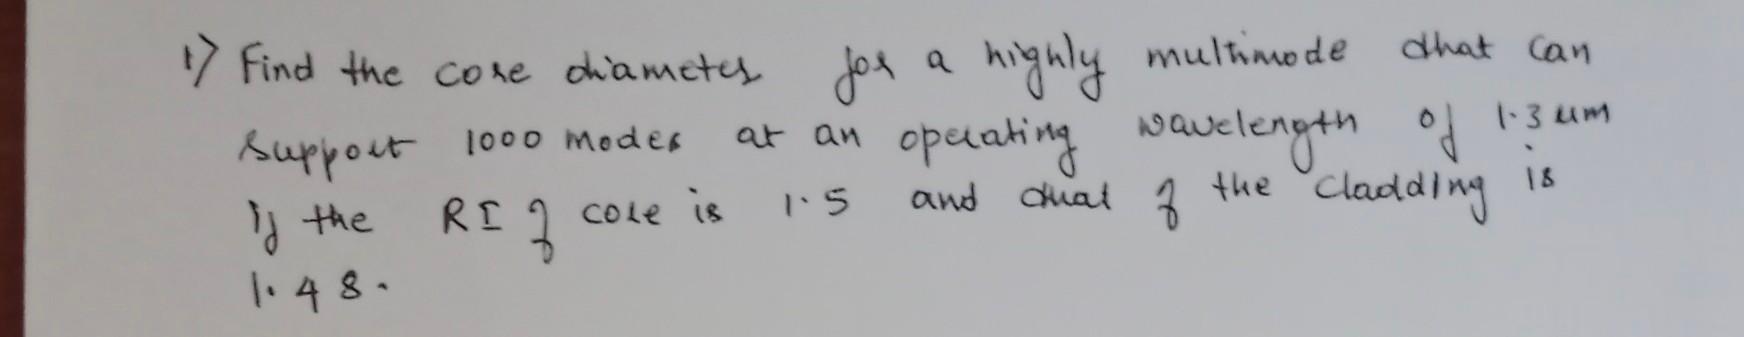 1) Find the core diameter for a highly multimode that can
support 1000 modes at an operating wavelength of 1.3 um
if the RI of core is 1.5 and that of the cladding is
1.48.